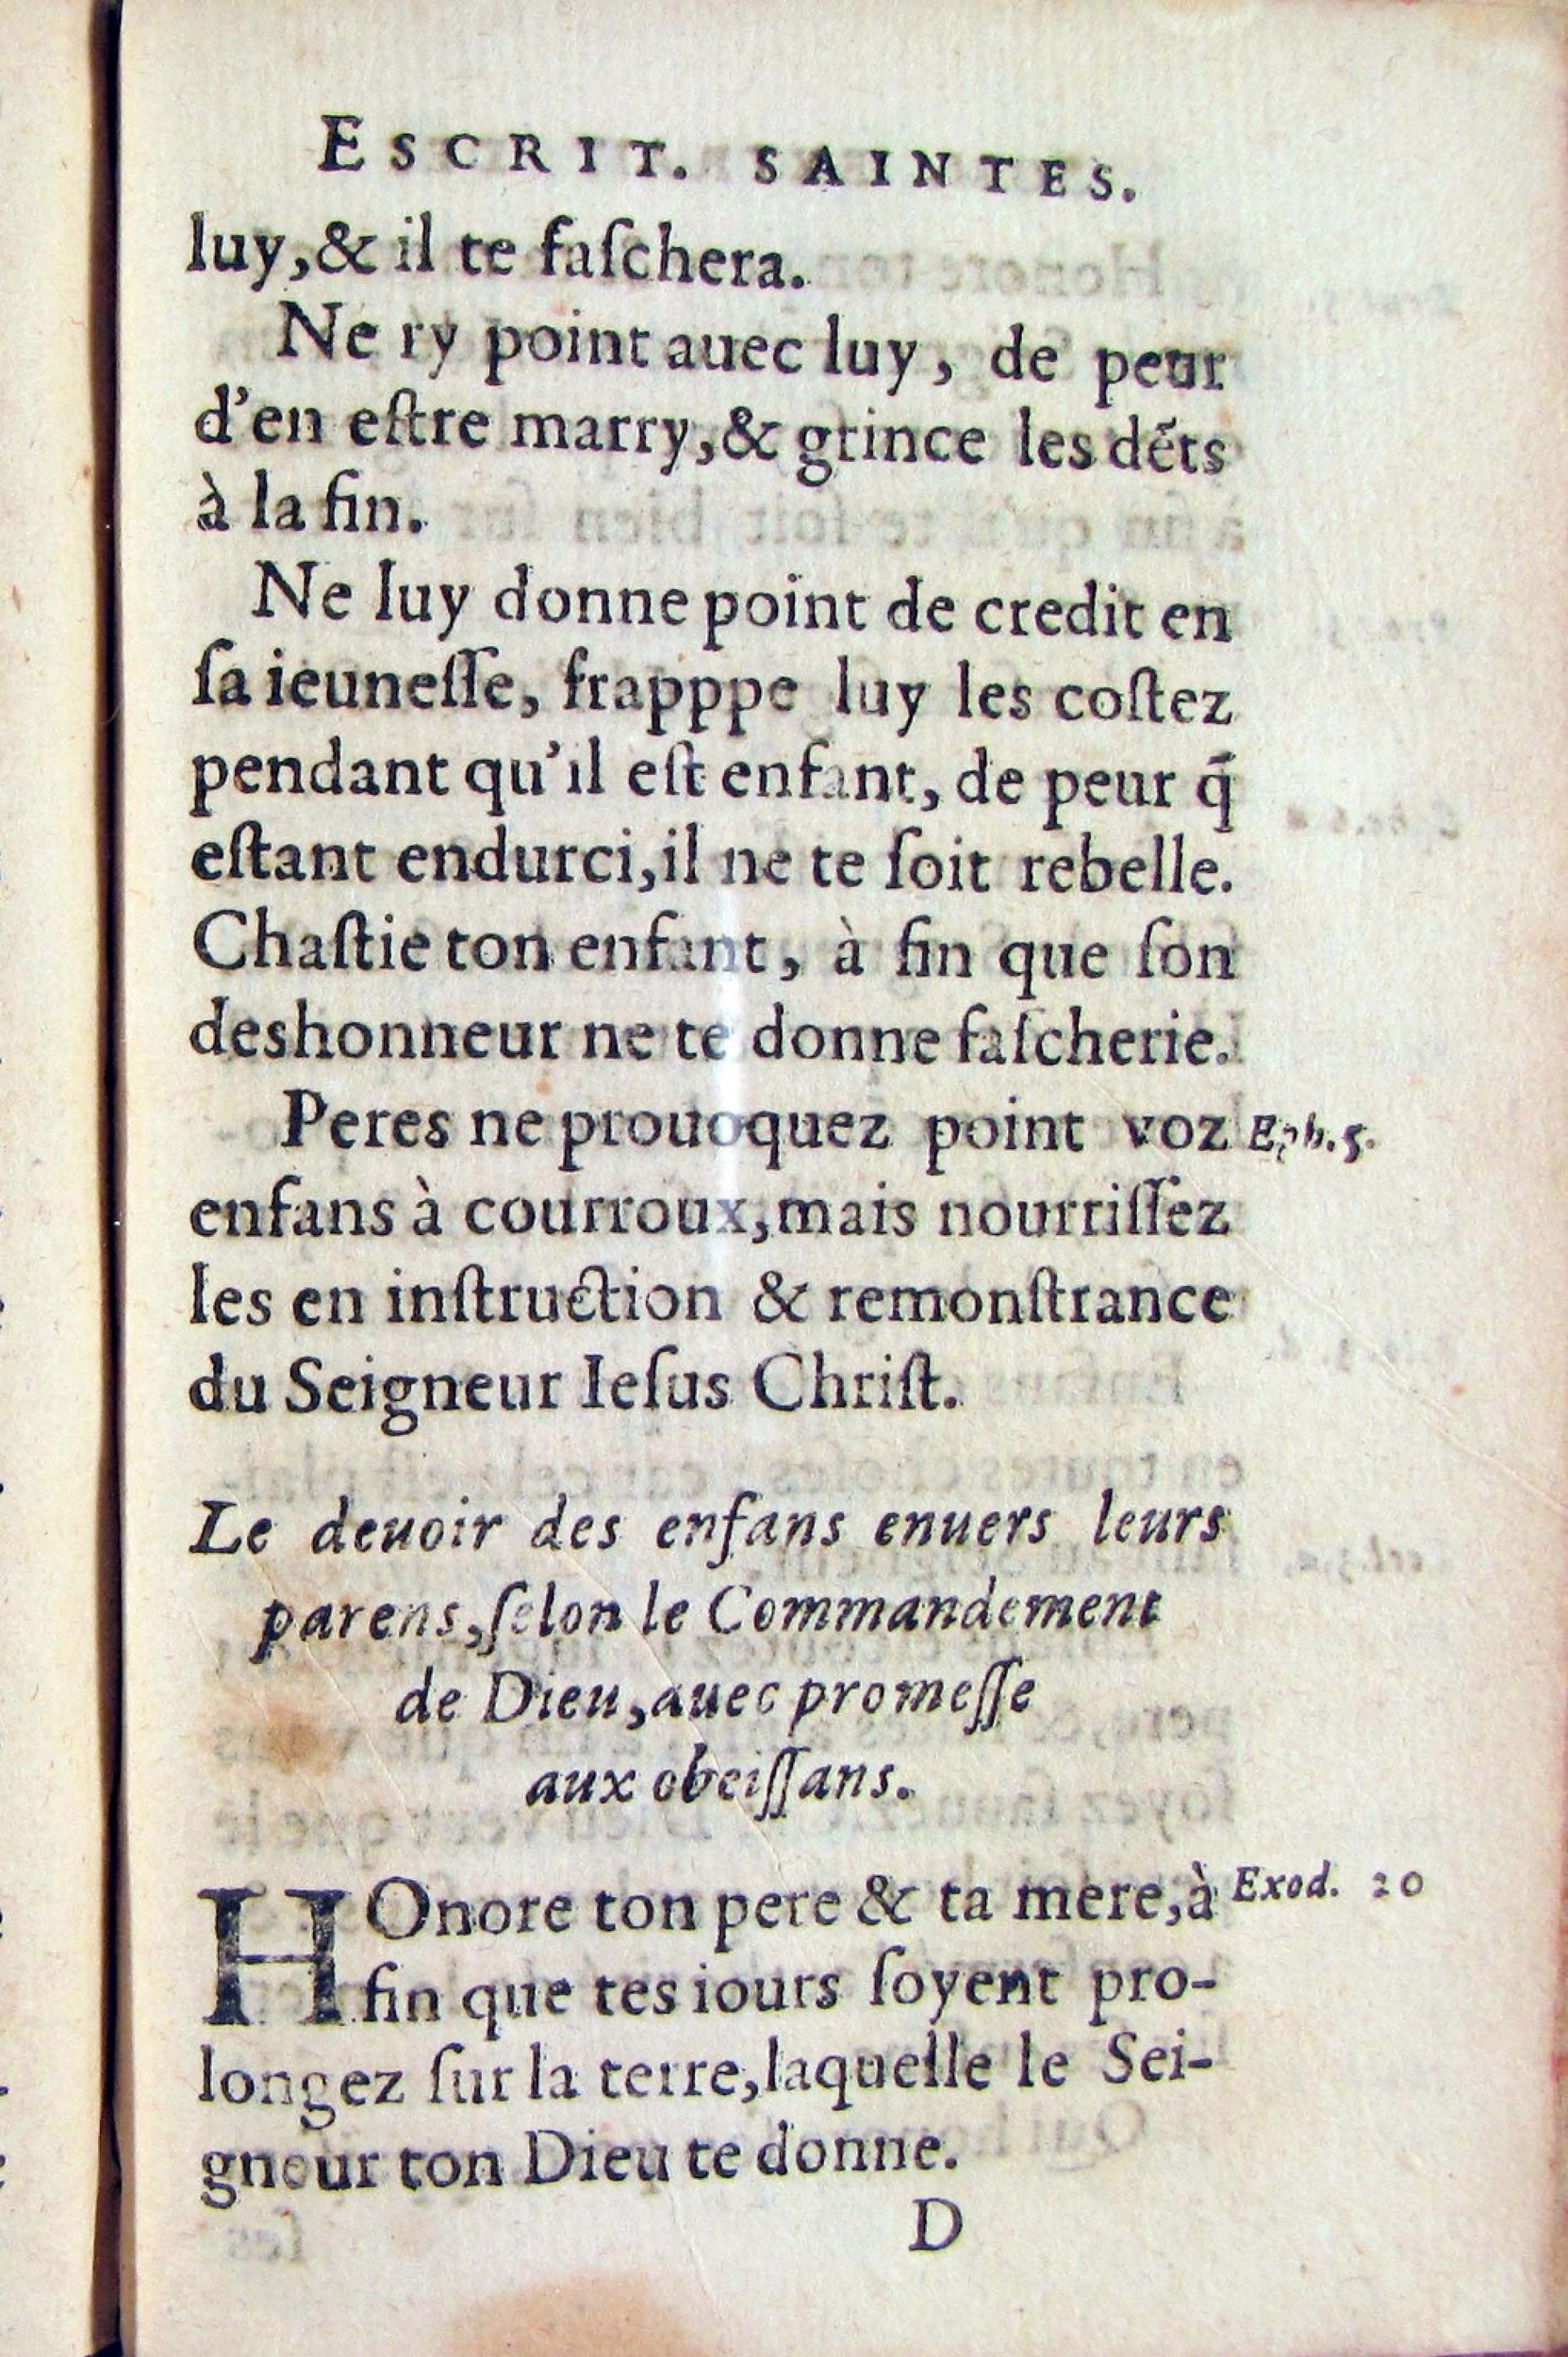 ESCRIT. SAINTES.
luy,& il te faſchera.
Ne ry point auec luy, de peur
d'en eſtre marry,& grince les dẽts
à la fin.
Ne luy donne point de credit en
ſa ieuneſſe, frapppe luy les coſtez
pendant qu'il eſt enfant, de peur q̃
eſtant endurci,il ne te ſoit rebelle.
Chaſtie ton enfant, à fin que ſon
deshonneur ne te donne faſcherie.
Peres ne prouoquez point voz Eph.5.
enfans à courroux,mais nourriſſez
les en inſtruction & remonſtrance
du Seigneur Ieſus Chriſt.
Le deuoir des enfans enuers leurs
parens,ſelon le Commandement
de Dieu,auec promeſſe
aux obeiſſans.
HOnore ton pere & ta mere,à Exod. 20
fin que tes iours ſoyent pro-
longez ſur la terre,laquelle le Sei-
gneur ton Dieu te donne.
D